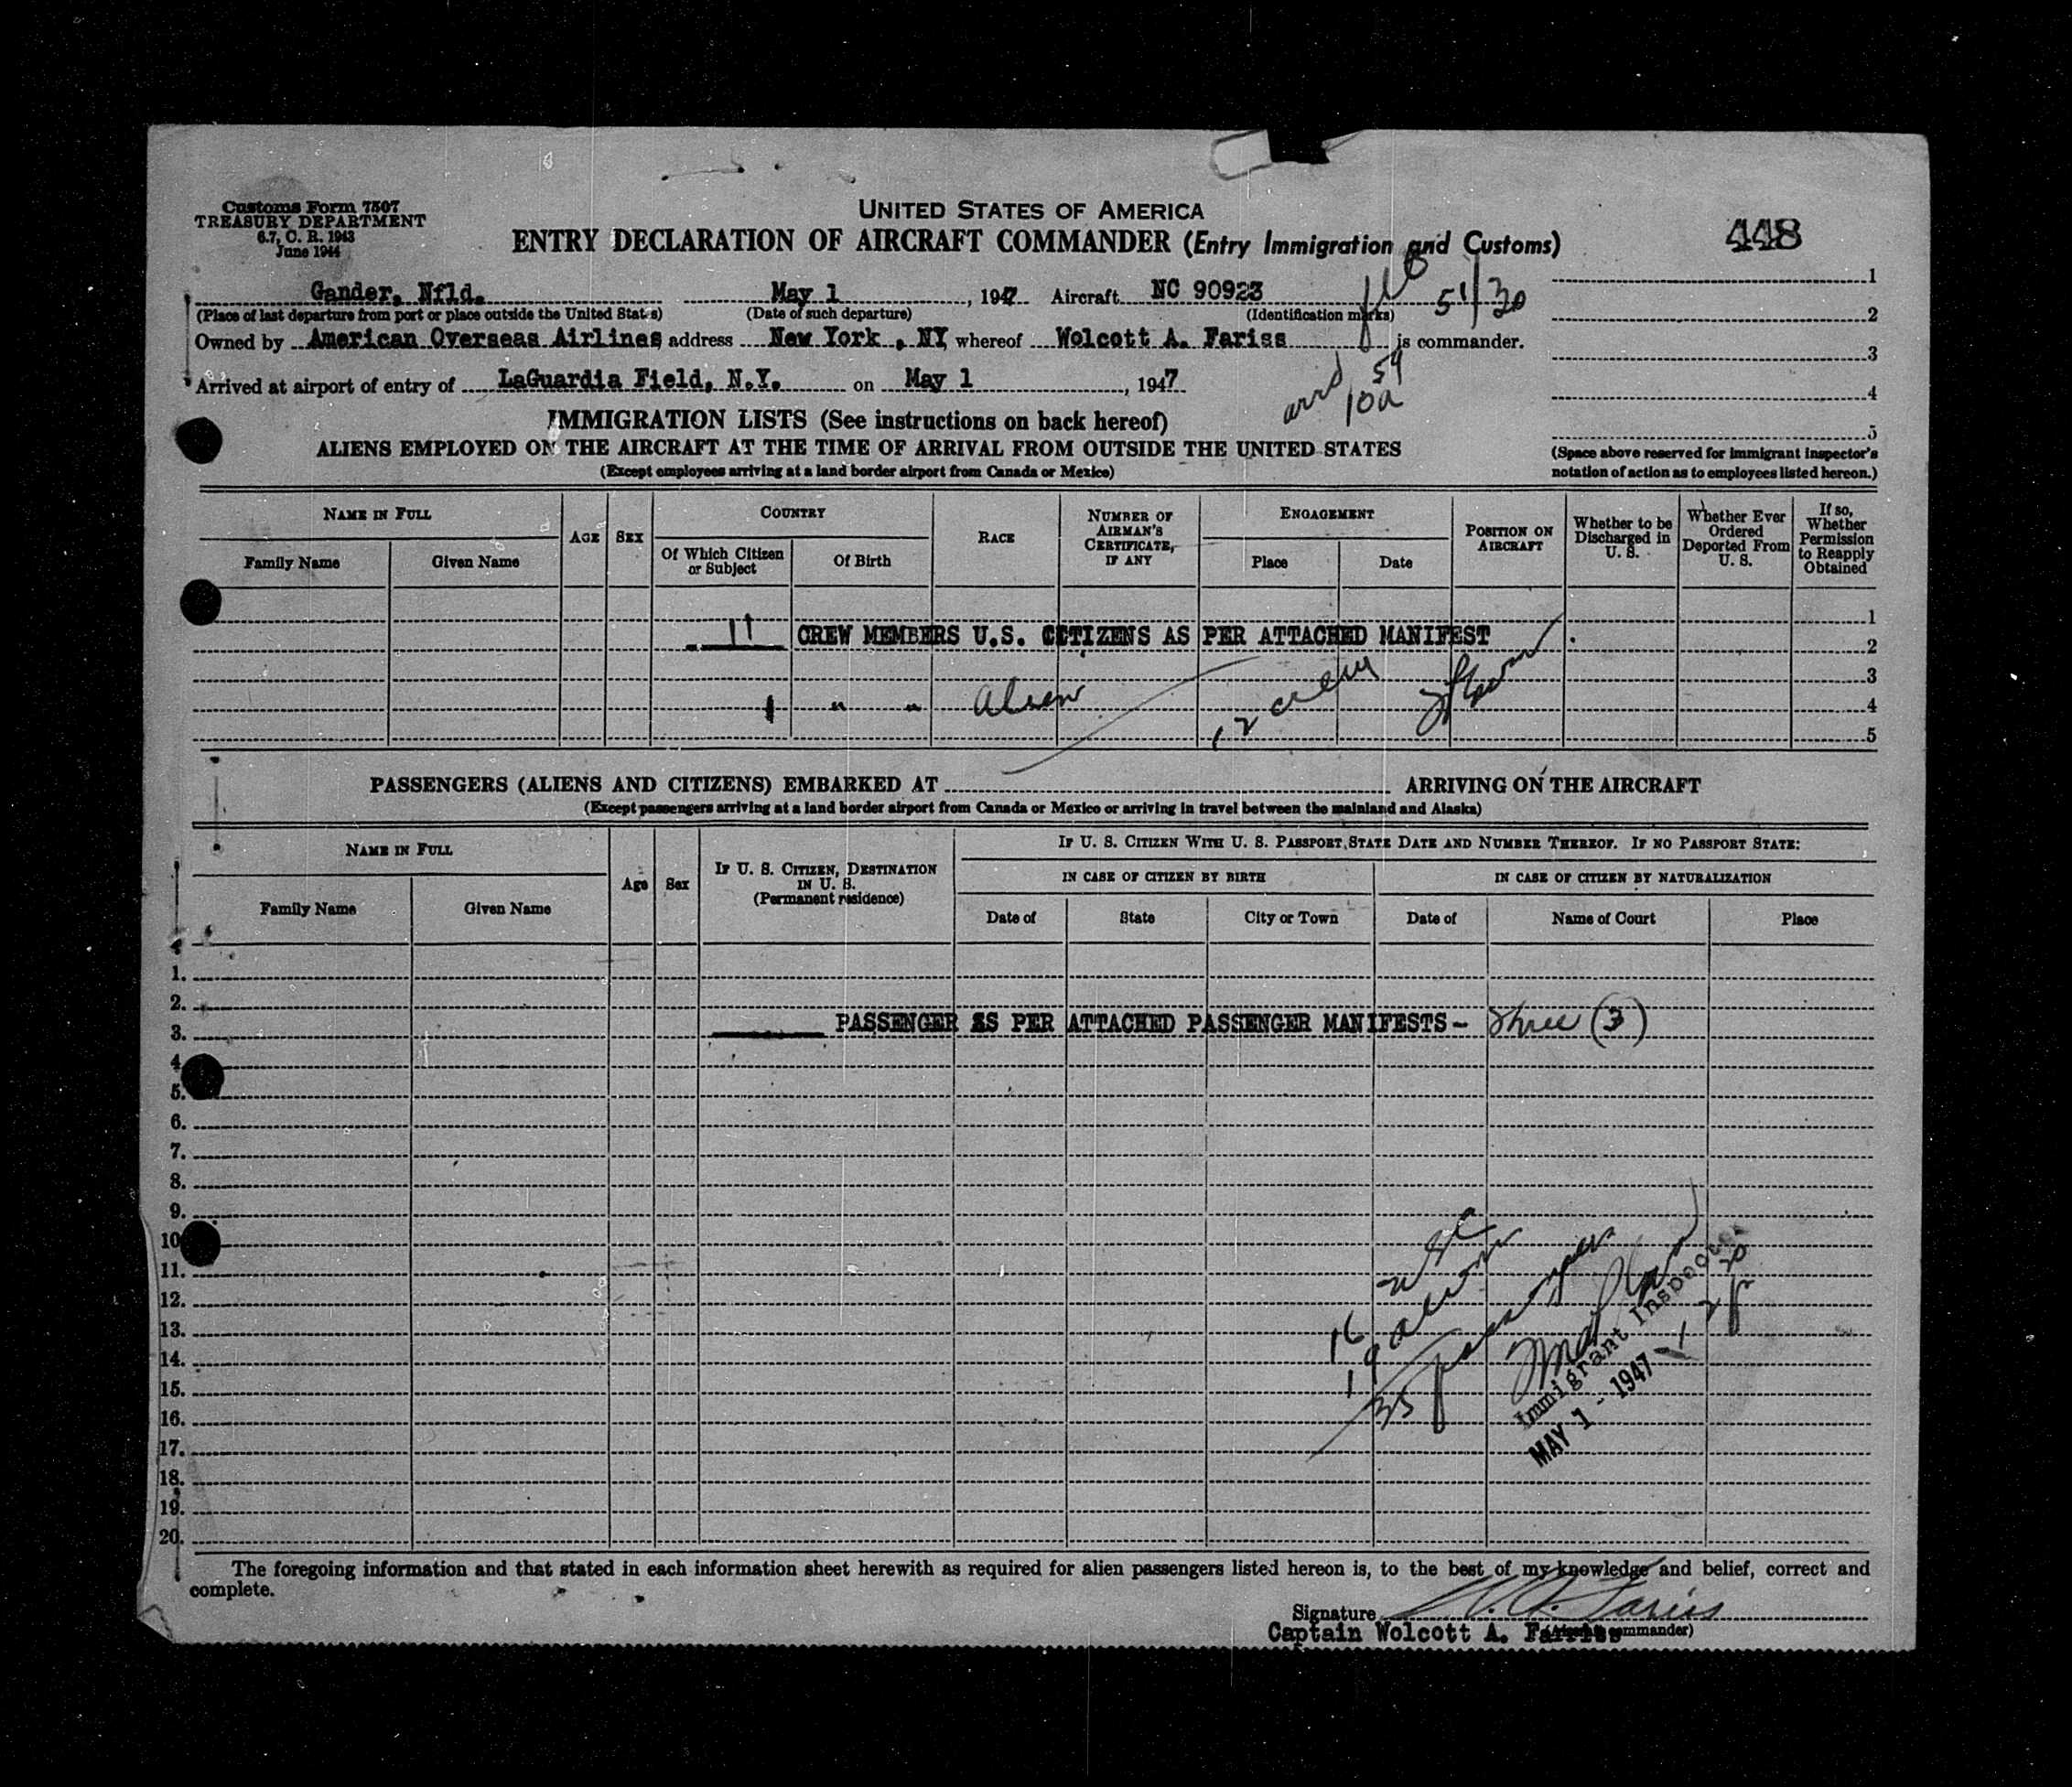 Customs Form 7507
TREASURY DEPARTMENT
6.7, C. R. 1943
June 1944
UNITED STATES OF AMERICA
ENTRY DECLARATION OF AIRCRAFT COMMANDER (Entry Immigration and Customs)
448
Gander, Nfld. May 1, 1947 Aircraft NC 90923
(Place of last departure from port or place outside the United States) (Date of such departure) (Identification marks)
51/30
Owned by American Overseas Airlines address New York, NY whereof Wolcott A. Fariss is commander.
Arrived at airport of entry of LaGuardia Field, N.Y. on May 1, 1947
arrd 10 59 a
1
2
3
4
5
(Space above reserved for immigrant inspector's
notation of action as to employees listed hereon.)
IMMIGRATION LISTS (See instructions on back hereof)
ALIENS EMPLOYED ON THE AIRCRAFT AT THE TIME OF ARRIVAL FROM OUTSIDE THE UNITED STATES
(Except employees arriving at a land border airport from Canada or Mexico)
NAME IN FULL
Family Name
Given Name
AGE
SEX
COUNTRY
Of Which Citizen or Subject
Of Birth
RACE
NUMBER OF AIRMAN'S CERTIFICATE, IF ANY
ENGAGEMENT
Place
Date
POSITION ON AIRCRAFT
Whether to be Discharged in U. S.
Whether Ever Ordered Deported From U. S.
If so, Whether Permission to Reapply Obtained
1
11 CREW MEMBERS U.S. CITIZENS AS PER ATTACHED MANIFEST 2
3
1 " " Alien 12 crew 4
5
PASSENGERS (ALIENS AND CITIZENS) EMBARKED AT ARRIVING ON THE AIRCRAFT
(Except passengers arriving at a land border airport from Canada or Mexico or arriving in travel between the mainland and Alaska)
NAME IN FULL
Family Name
Given Name
Age
Sex
IF U. S. CITIZEN, DESTINATION IN U. S.
(Permanent residence)
IF U. S. CITIZEN WITH U. S. PASSPORT, STATE DATE AND NUMBER THEREOF. IF NO PASSPORT STATE:
IN CASE OF CITIZEN BY BIRTH
Date of
State
City or Town
IN CASE OF CITIZEN BY NATURALIZATION
Date of
Name of Court
Place
1.
2.
3. PASSENGER AS PER ATTACHED PASSENGER MANIFESTS - Three (3)
4.
5.
6.
7.
8.
9.
10.
11.
12.
13.
14.
15.
16.
17.
18.
19.
20.
16 USC
19 aliens
35 passengers
Immigrant Inspector
MAY 1 - 1947
The foregoing information and that stated in each information sheet herewith as required for alien passengers listed hereon is, to the best of my knowledge and belief, correct and
complete.
Signature W. A. Fariss
Captain Wolcott A. Fariss (Aircraft commander)